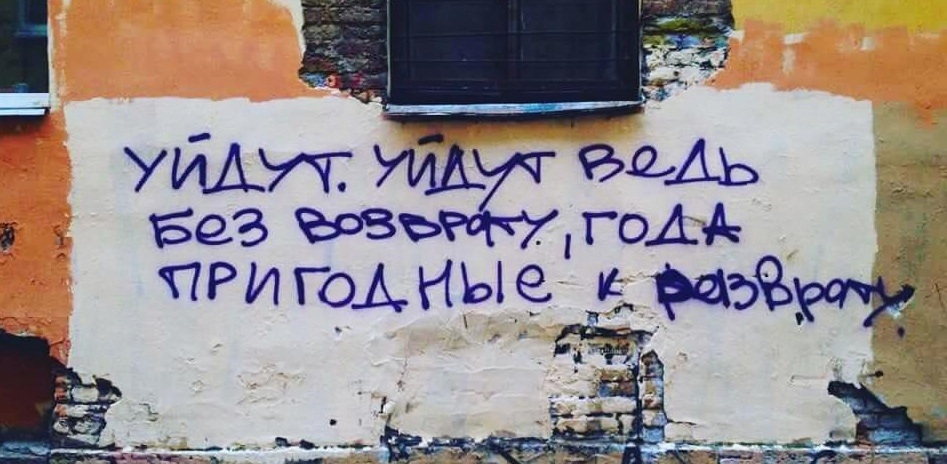 уйдут. уйдут ведь
без возврату, года
пригодные к разврату.